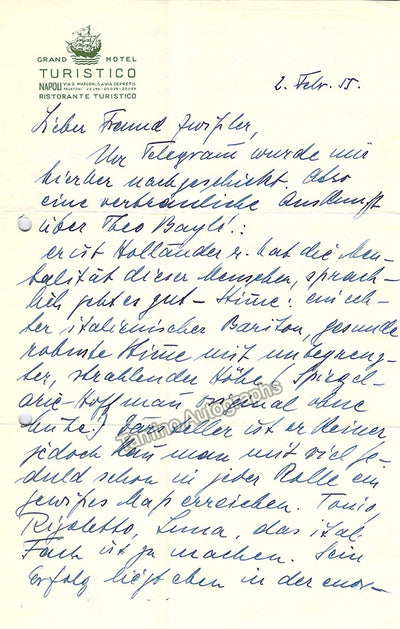 GRAND HOTEL
TURISTICO
NAPOLI VIA G. MARCONI, 5 A VIA DEPRETIS
RISTORANTE TURISTICO
2. Febr. 55.
Lieber Freund Zwißler,
Ihr Telegram wurde mir
hierher nachgeschickt. Also
eine vertrauliche Auskunft
über Theo Baylé.:
er ist Holländer u. hat die Men-
talität dieser Menschen, sprach-
lich geht es gut – Stimme: ein ech-
ter italienischer Bariton, gesunde
robuste Stimme mit unbegrenz-
ter, strahlender Höhe (Spiegel-
arie Hoffmann original ohne
Mühe!) Darsteller ist er keiner,
jedoch kann man mit viel Ge-
duld schon in jeder Rolle ein
gewißes Maß erreichen. Tonio,
Rigoletto, Luna, das ital.
Fach ist ja machen. Sein
Erfolg liegt eben in der enor-
Tamino Autographs